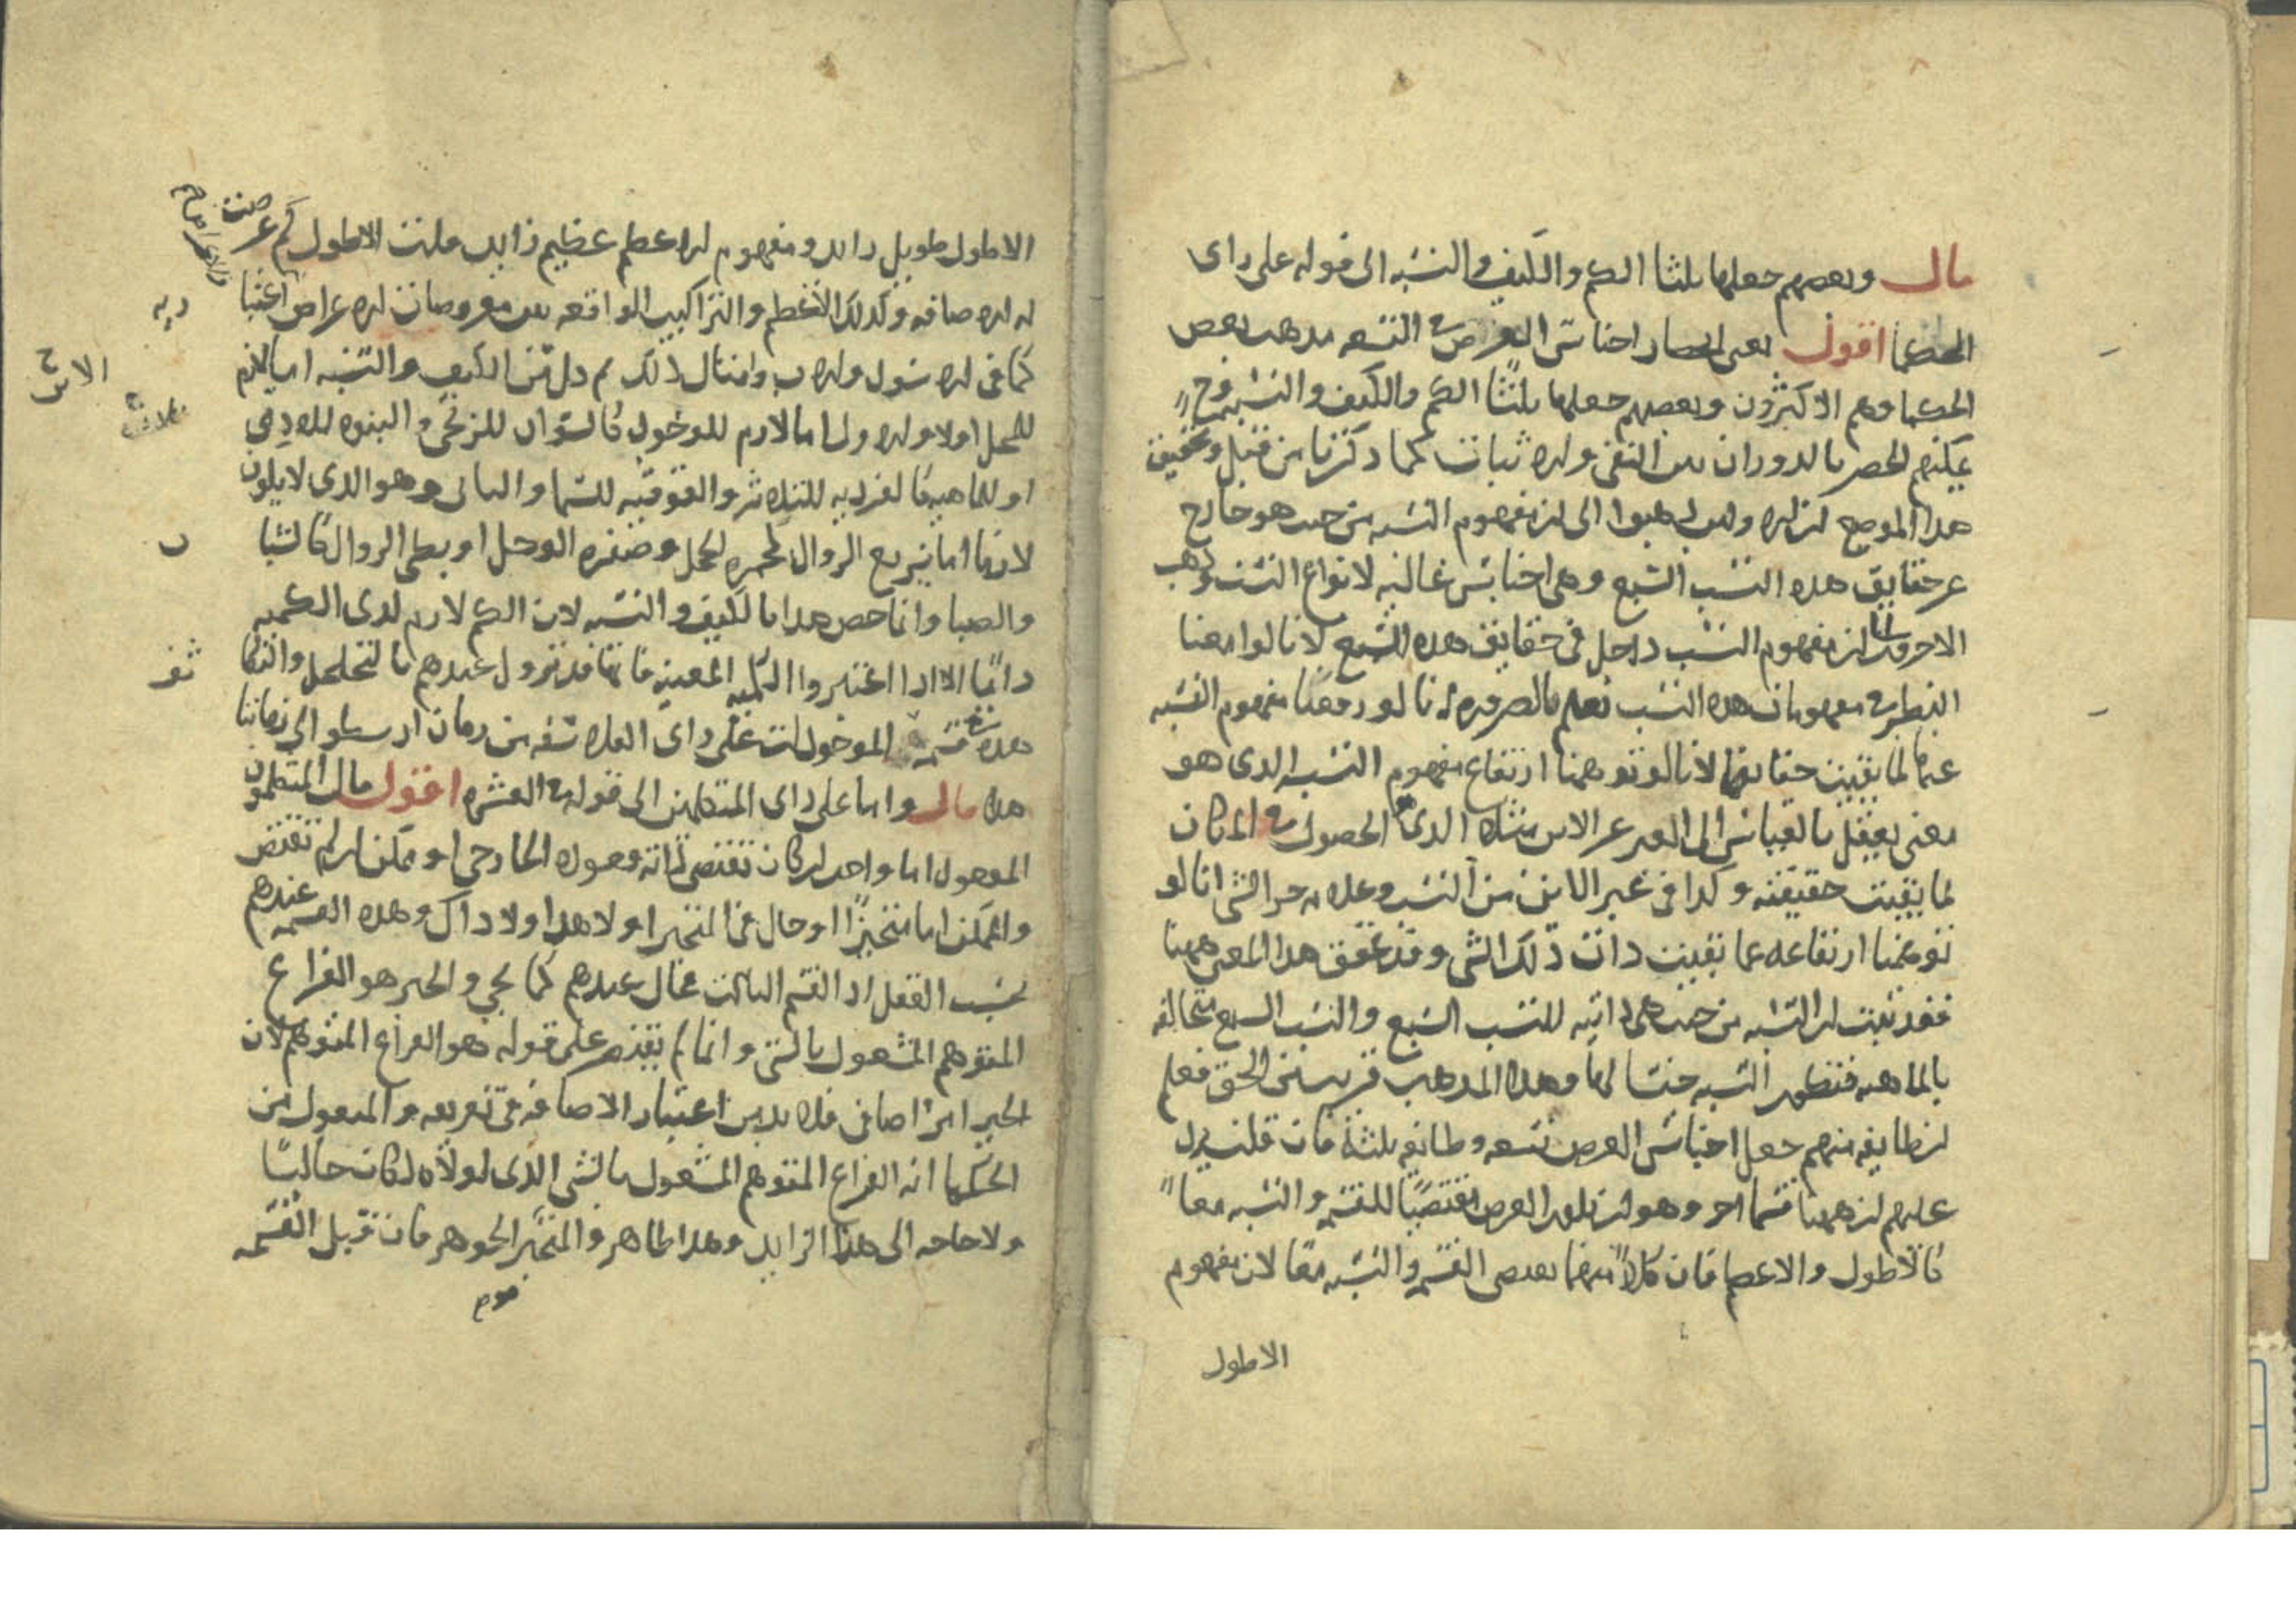 قال وبعضهم جعلها ثلثا الكم والكيف والنسبه الى قوله على راى
الحكما اقول يعنى انحصار اجناس العرض فى التسعه مذهب بعض
الحكما وهم الاكثرون وبعضهم جعلها ثلثا الكم والكيف والنسبه وح
يمكنهم الحصر بالدوران بين النفى والاثبات كما ذكرنا من قبل وتحقيق
هذا الموضع ان الاولين ذهبوا الى ان مفهوم النسبه من حيث هو خارج
عن حقايق هذه النسب السبع وهى اجناس عاليه لانواع النسب وذهب
الاخرون الى ان مفهوم النسب داخل فى حقايق هذه السبع لانا لو امعنا
النظر فى مفهومات هذه النسب نعلم بالضروره انا لو رفعنا مفهوم النسبه
عنها لما بقيت حقايقها لانا لو توهمنا ارتفاع مفهوم النسبه الذى هو
معنى يعقل بالقياس الى الغير عن الاين مثلا الذى هو الحصول فى المكان
لما بقيت حقيقته وكذا فى غير الاين من النسب وعلامه جزء الشى انا لو
توهمنا ارتفاعه لما بقيت ذات ذلك الشى وقد تحقق هذا المعنى ههنا
فقد ثبت ان النسبه من حيث هى ذاتيه للنسب السبع والنسب السبع متخالفه
بالماهيه فتكون النسبه جنسا لها وهذا المذهب قريب من الحق فعلم
ان طايفه منهم جعل اجناس العرض تسعه وطايفه ثلثة فان قلت يرد
عليهم ان ههنا قسما اخر وهو ان يكون العرض مقتضيا للقسمه والنسبه معا
كالاطول والاعظم فان كلا منهما يقتضى القسمه والنسبه معا لان مفهوم
الاطول
الاطول طويل زايد ومفهوم الاعظم عظيم زايد قلت الاطول كم عرضت
له الاضافه وكذلك الاعظم والتراكيب الواقعه بين معروضات الاعراض اعتبا
ريه
كما فى الاسود والاب وامثال ذلك ثم كل من الكيف والنسبه اما لازم
الاين ح
للمحل اولا والاول اما لازم للوجود كالسواد للزنجى والبنوه للادمى
او للماهيه كالفرديه للثلاثه والفوقيه للسما والثانى وهو الذى لا يكون
لازما اما سريع الزوال كحمره الخجل وصفره الوجل او بطى الزوال كالشبا
ب
والصبا وانما خص هذا بالكيف والنسبه لان الكم لازم لذى الكميه
دائما الا اذا اعتبروا الكميه المعينه فانها قد تزول عندهم بالتخلخل والتكا
ثف
هذه قسمه الموجودات على راى الفلاسفه من زمان ارسطو الى زماننا
هذا قال واما على راى المتكلمين الى قوله فى العشره اقول قال المتكلمون
الموجود اما واجب ان كان تقتضى ذاته وجوده الخارجى او ممكن ان لم تقتض
والممكن اما متحيز او حال فى المتحيز او لا هذا ولا ذاك وهذه القسمه عندهم
بحسب العقل اذ القسم الثالث محال عندهم كما يجى والحيز هو الفراغ
المتوهم المشغول بالشى وانما لم يقتصر على قوله هو الفراغ المتوهم لان
الحيز امر اضافى فلا بد من اعتبار الاضافه فى تعريفه والمنقول من
الحكما انه الفراغ المتوهم المشغول بالشى الذى لولاه لكان خاليا
ولا حاجه الى هذا الزايد وهذا ظاهر والمتحيز الجوهر فان قبل القسمه